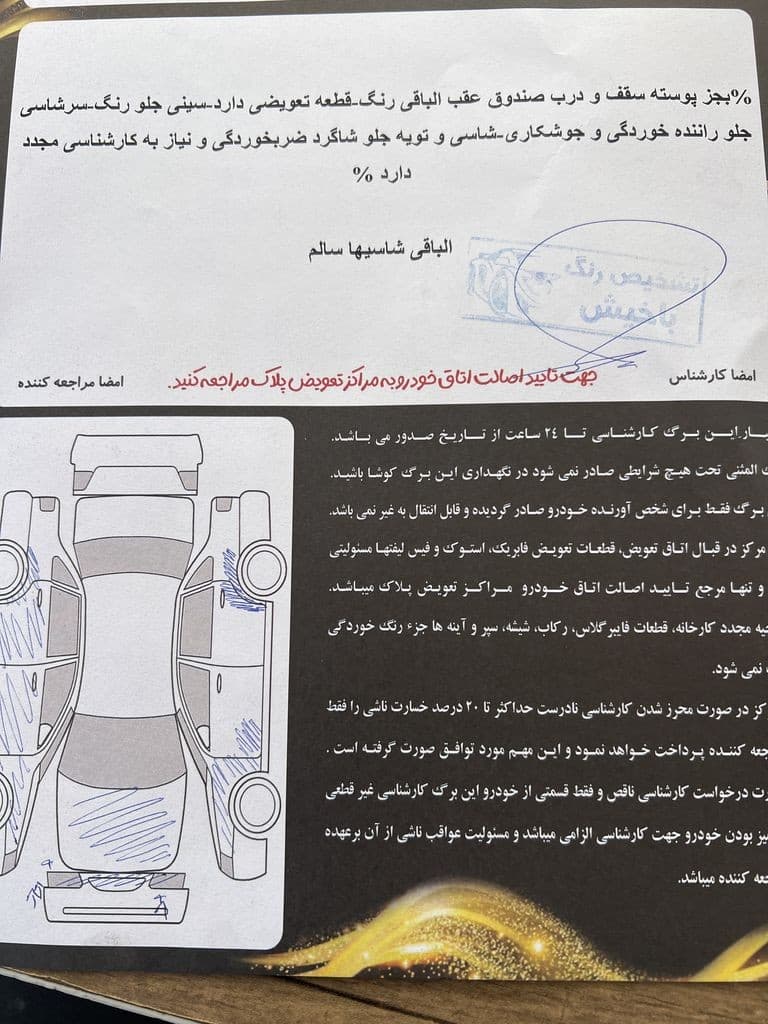 %بجز پوسته سقف و درب صندوق عقب الباقی رنگ-قطعه تعویضی دارد-سینی جلو رنگ-سرشاسی
جلو راننده خوردگی و جوشکاری-شاسی و تویه جلو شاگرد ضربخوردگی و نیاز به کارشناسی مجدد
دارد %
الباقی شاسیها سالم
تشخیص رنگ
باخیش
امضا کارشناس
جهت تایید اصالت اتاق خودرو به مراکز تعویض پلاک مراجعه کنید.
امضا مراجعه کننده
این برگ کارشناسی تا ۲۴ ساعت از تاریخ صدور می باشد.
المثنی تحت هیچ شرایطی صادر نمی شود در نگهداری این برگ کوشا باشید.
برگ فقط برای شخص آورنده خودرو صادر گردیده و قابل انتقال به غیر نمی باشد.
مرکز در قبال اتاق تعویض، قطعات تعویض فابریک، استوک و فیس لیفتها مسئولیتی
و تنها مرجع تایید اصالت اتاق خودرو مراکز تعویض پلاک میباشد.
مجدد کارخانه، قطعات فایبرگلاس، رکاب، شیشه، سپر و آینه ها جزء رنگ خوردگی
نمی شود.
در صورت محرز شدن کارشناسی نادرست حداکثر تا ۲۰ درصد خسارت ناشی را فقط
کننده پرداخت خواهد نمود و این مهم مورد توافق صورت گرفته است .
درخواست کارشناسی ناقص و فقط قسمتی از خودرو این برگ کارشناسی غیر قطعی
بودن خودرو جهت کارشناسی الزامی میباشد و مسئولیت عواقب ناشی از آن برعهده
کننده میباشد.